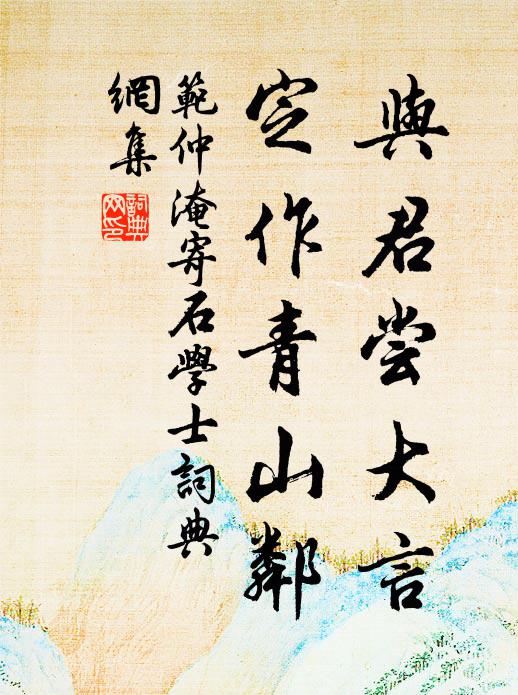 與君嘗大言
定作青山鄰
範仲淹寄石學士詞典
網集
詞典
网印